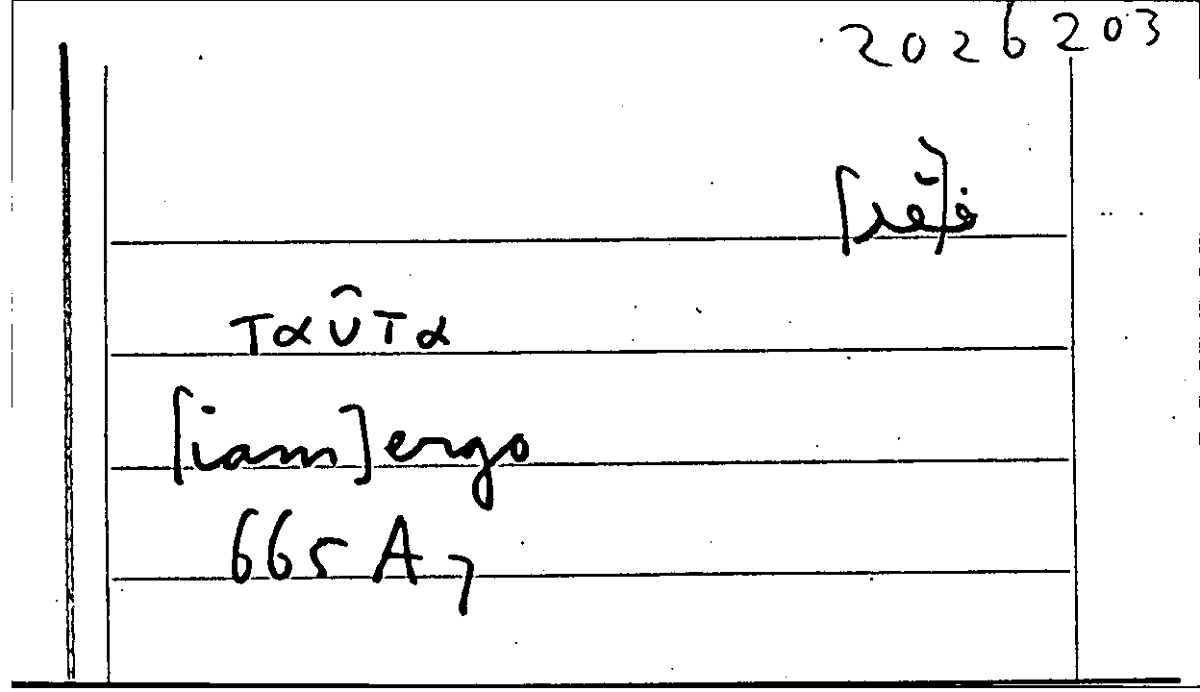 2026203
ταῦτα
[iam] ergo
665 A 7